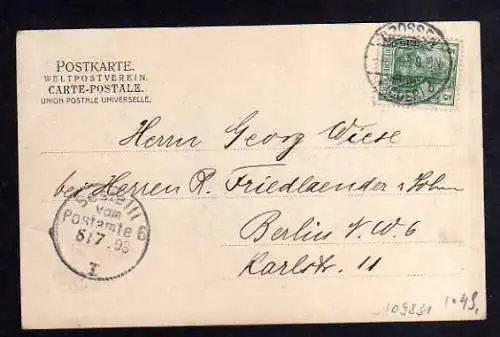 POSTKARTE.
WELTPOSTVEREIN.
CARTE-POSTALE.
UNION POSTALE UNIVERSELLE.
Herrn Georg Wiese
bei Herren R. Friedlaender & Sohn
Berlin N.W. 6
Karlstr. 11
Bestellt
vom
Postamte 6
5/7.03
T
5
109831